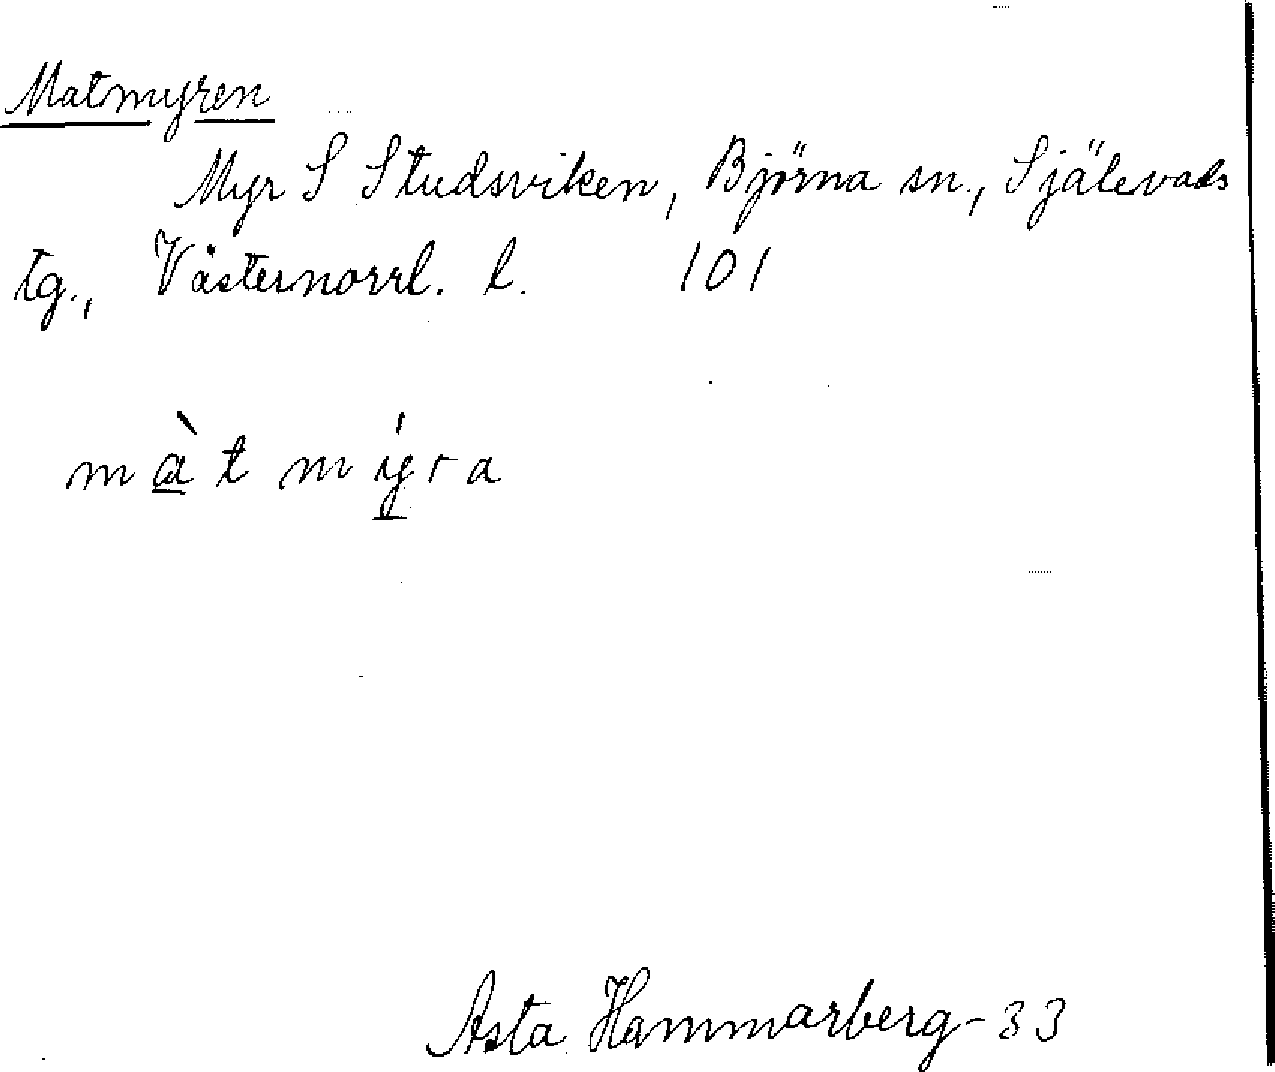 Matmyren
Myr S Studsviken, Björna sn., Själevads
tg., Västernorrl. l. 101
màt mýra
Asta Hammarberg - 33